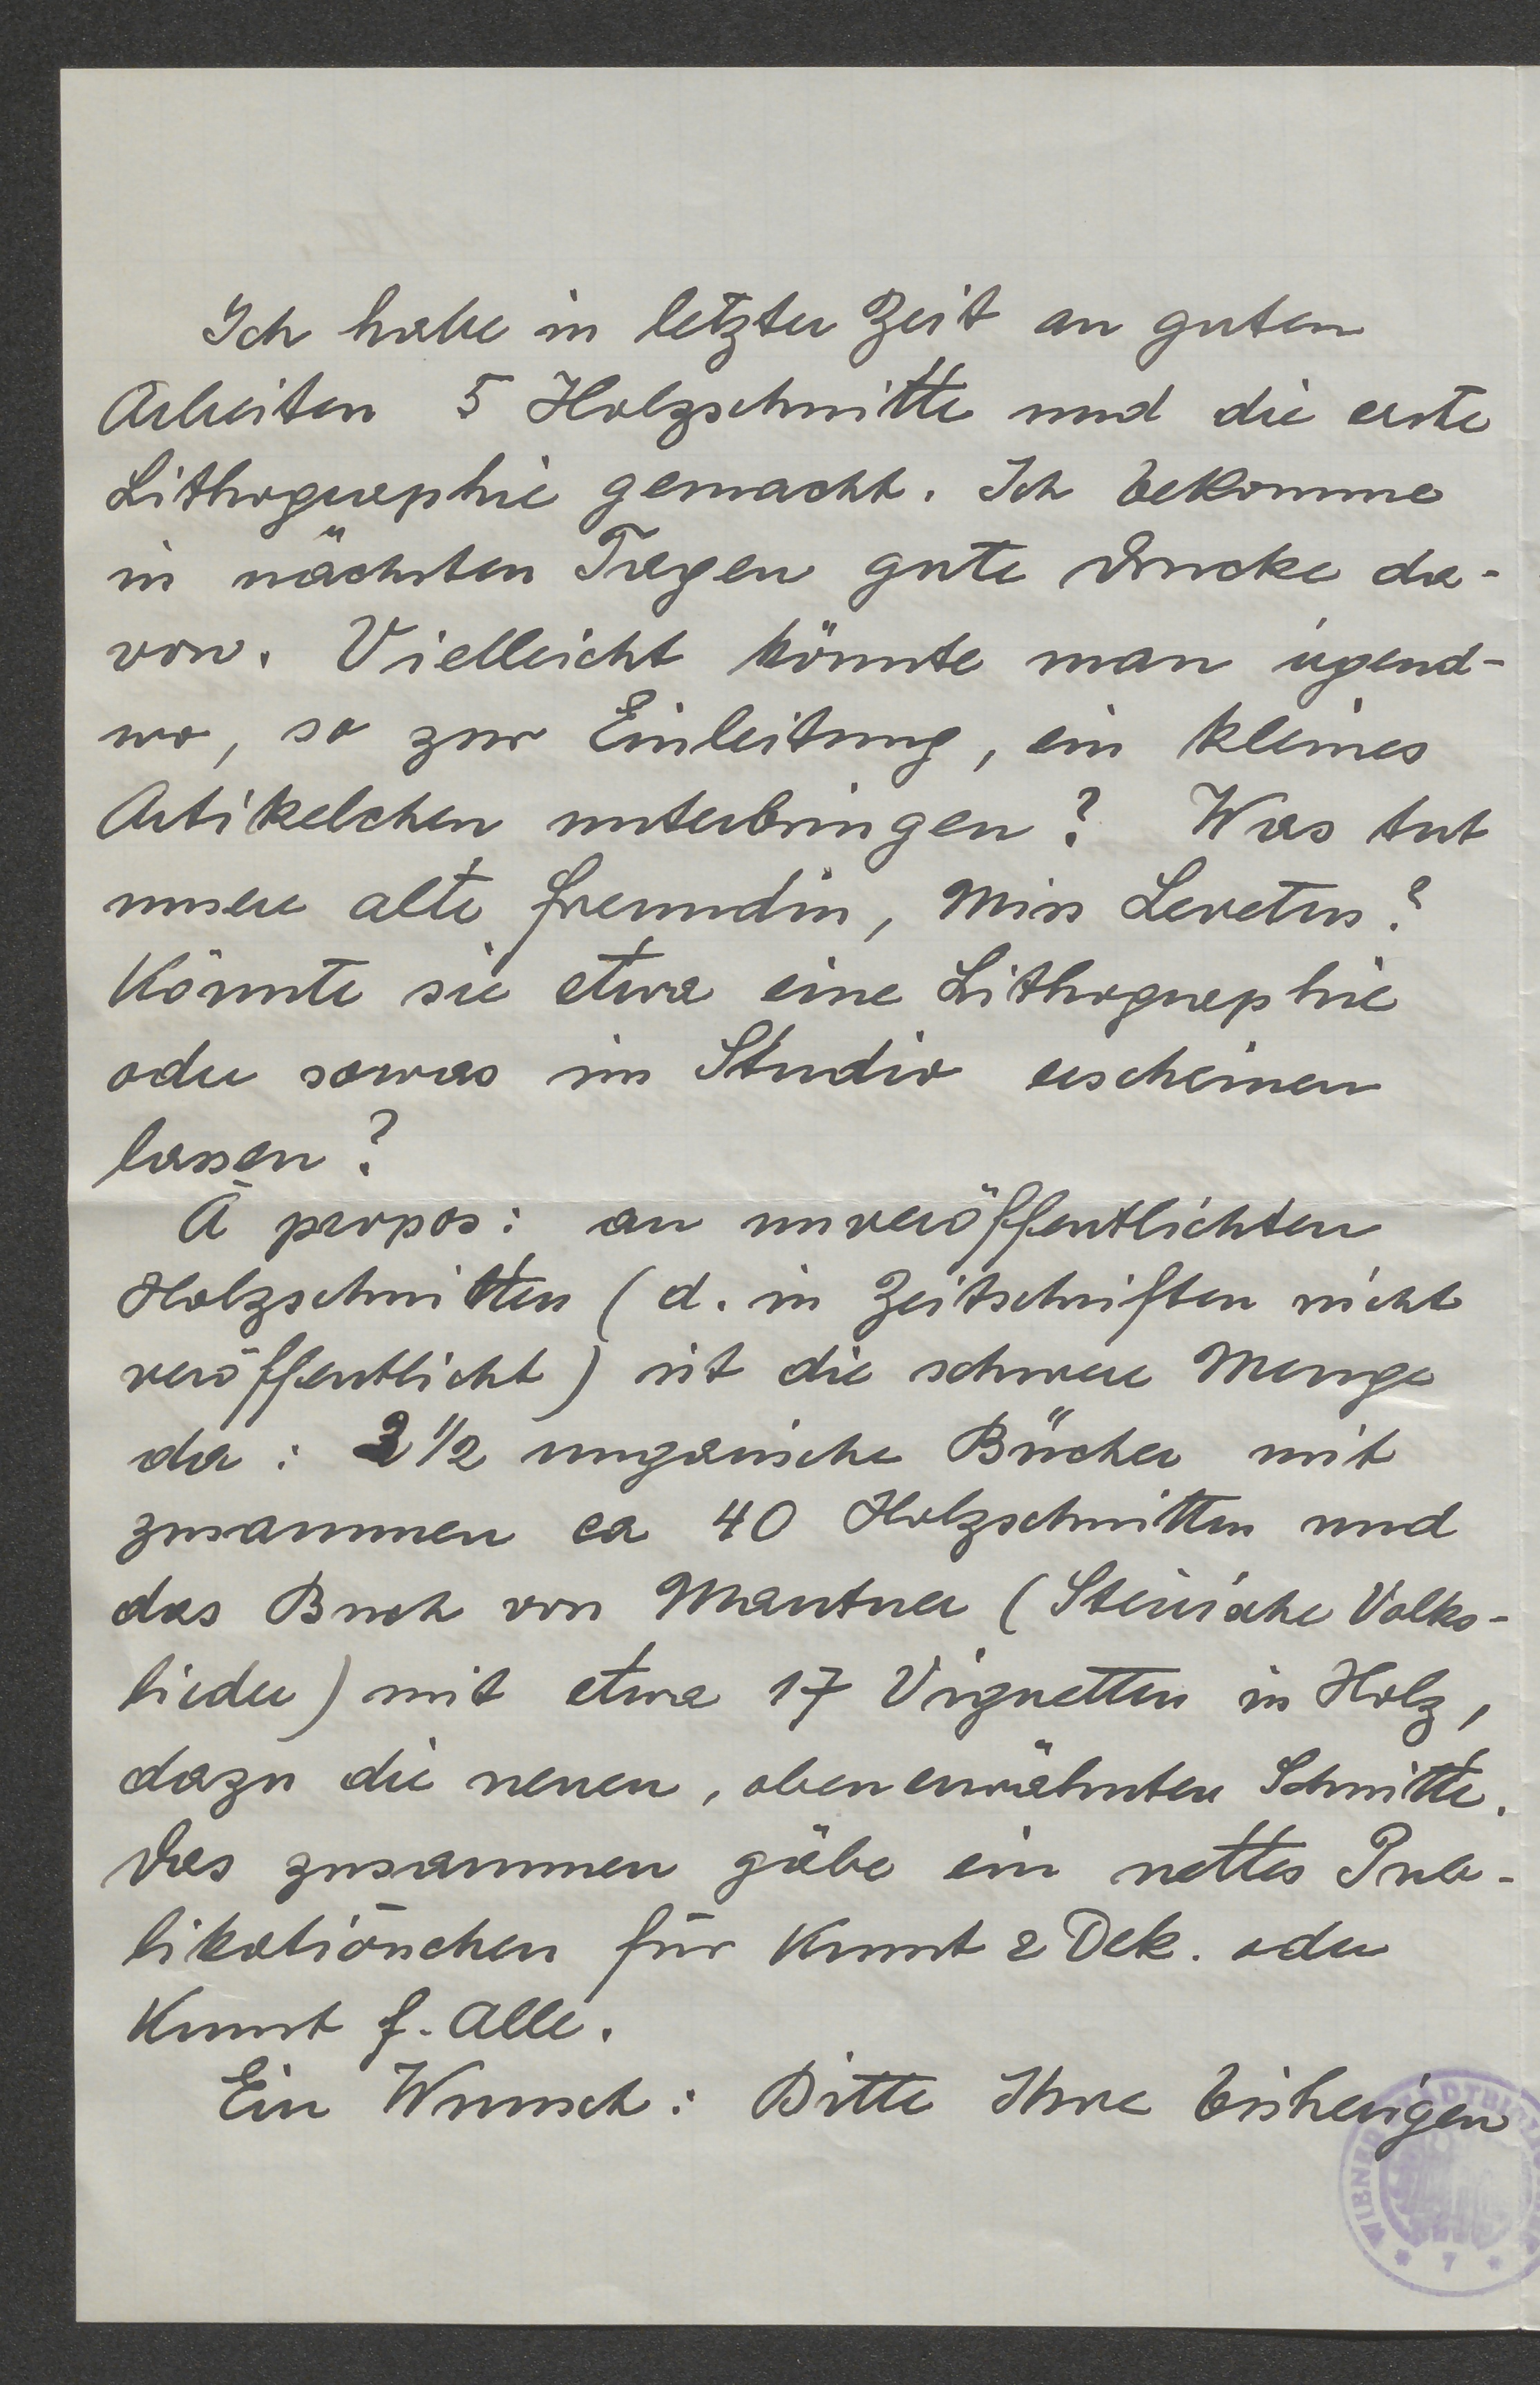 Ich habe in letzter Zeit an guten
Arbeiten 5 Holzschnitte und die erste
Lithographie gemacht. Ich bekomme
in nächsten Tagen gute Drucke da-
von. Vielleicht könnte man irgend-
wo, so zur Einleitung, ein kleines
Artikelchen unterbringen? Was tut
unsere alte Freundin, Miss Levetus?
Könnte sie etwa eine Lithographie
oder sowas im Studio erscheinen
lassen?
À propos: an unveröffentlichten
Holzschnitten (d. in Zeitschriften nicht
veröffentlicht) ist die schwere Menge
da: 1/2 ungarische Bücher mit
zusammen ca 40 Holzschnitten und
das Buch von Mautner (Steirische Volks-
lieder) mit etwa 17 Vignetten in Holz,
dazu die neuen, obenerwähnten Schnitte.
Das zusammen gäbe ein nettes Pub-
likatiönchen für Kunst & Dek. oder
Kunst f. Alle.
Ein Wunsch: Bitte Ihre bisherigen
WIENER STADTBIBL
* 7 *